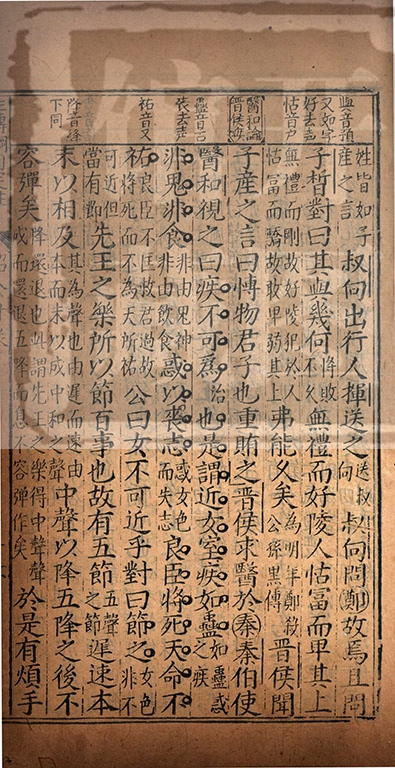 與音預
又如字
好去声
怙音户
醫和論
晉侯疾
蠱音古
丧去声
祐音又
降音絳
下同
姓皆如子産之言叔向出行人揮送之送叔向叔向問鄭故焉且問
子晳對曰其與幾何將敗不久無禮而好陵人怙富而卑其上
無禮而剛故好陵犯於人怙富而驕故敢卑蔑其上弗能久矣為明年鄭殺公孫黑傳晉侯聞
子産之言曰博物君子也重賄之晉侯求醫於秦秦伯使
醫和視之曰疾不可為治也是謂近女室疾如蠱如蠱惑之疾
非鬼非食非由鬼神非由飲食惑以喪志惑女色而失志良臣將死天命不
祐良臣不匡故君過故将死而不為天所祐公曰女不可近乎對曰節之女色非不
可近但當有節先王之樂所以節百事也故有五節五聲之節遲速本
末以相及其為聲也由遲而速由本而末以成中和之聲中聲以降五降之後不
容彈矣降還退也此謂先王之樂得中聲聲成而還退五降而息不容彈作矣於是有煩手